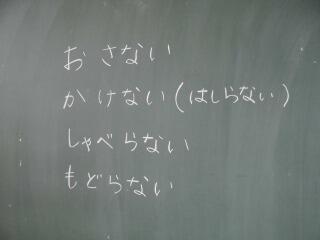 おさない
かけない(はしらない)
しゃべらない
もどらない